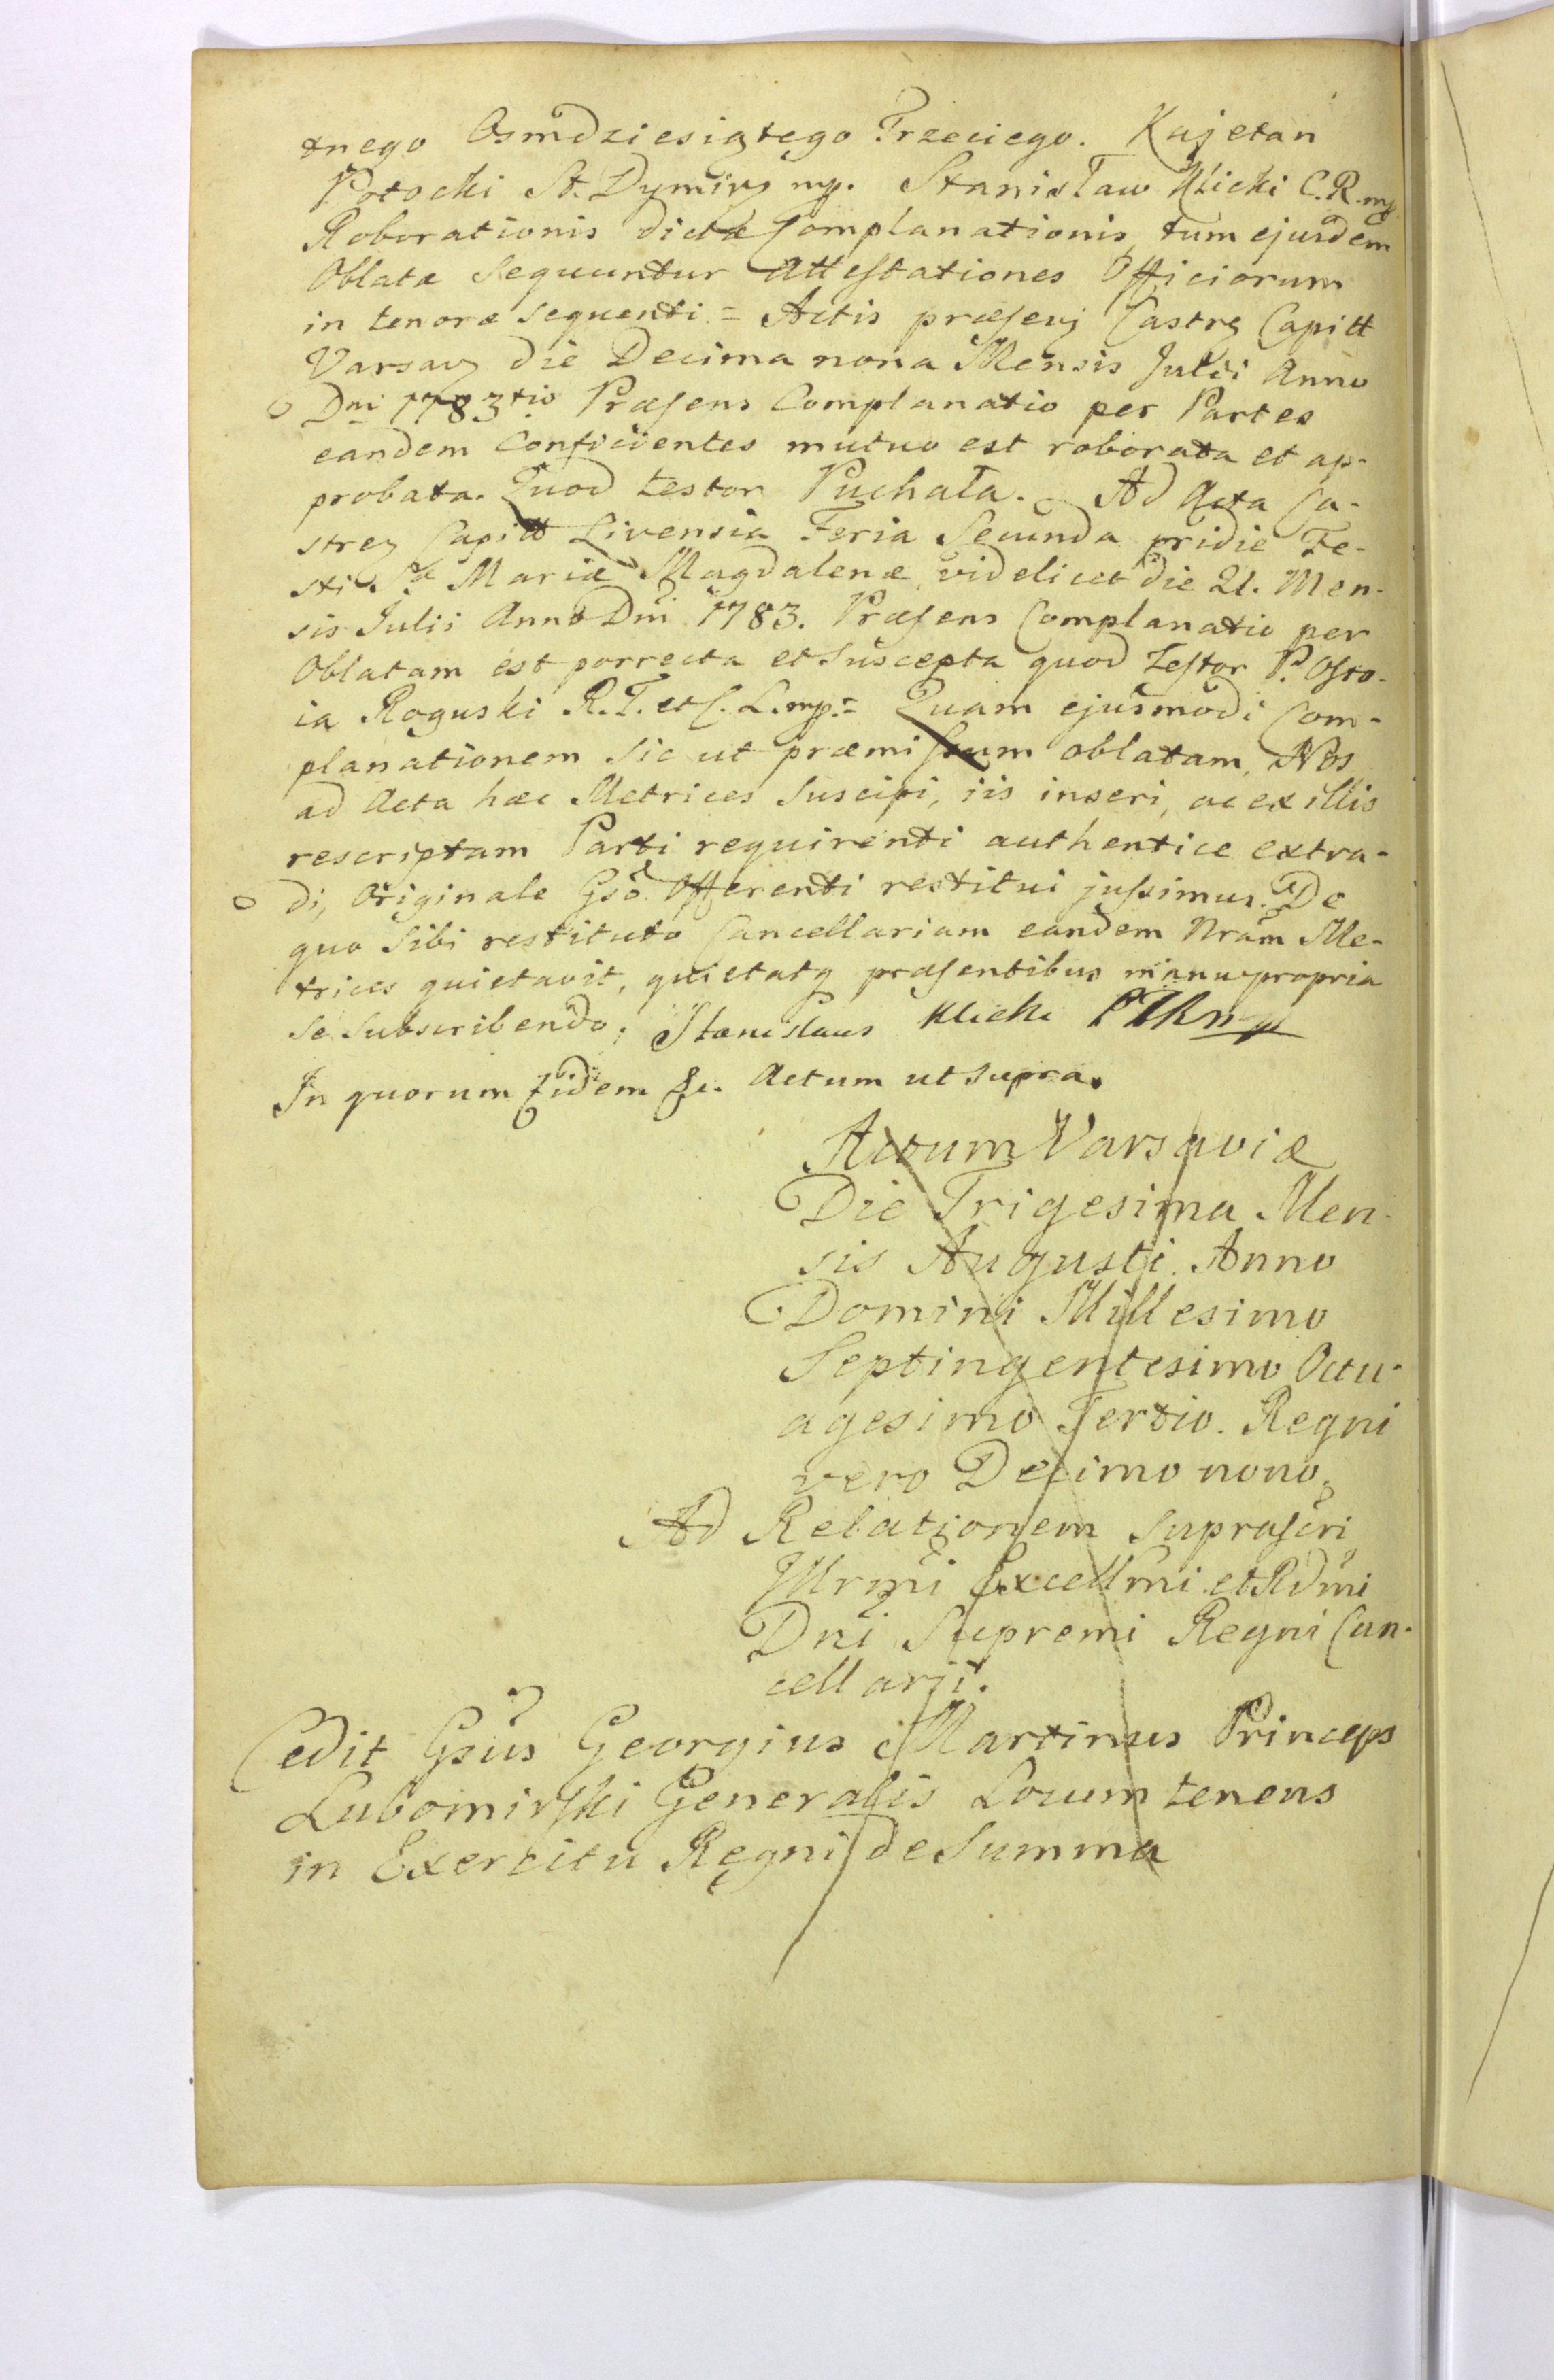 tnego Osmdziesiątego Trzeciego. Kajetan
Potocki St. Dymirs mp. Stanisław Klicki C.R. mp
Roborationis dictæ Complanationis, tum ejusdem
Oblatæ sequuntur Attestationes Officiorum
in tenore sequenti = Actis præsens Castrs Capitt
Varsavs die Decima nona Mensis Julii Anno
Dni 1783tio Præsens Complanatio per Partes
eandem conficientes mutuo est roborata et ap-
probata. Quod testor Puchała. Ad Acta Ca-
stren Capitt Livensia Feria Secunda pridie Fe-
sti Sæ Mariæ Magdalenæ videlicet die 21. Men-
sis Julii Anno Dni 1783. Præsens Complanatio per
Oblatam est porrecta et suscepta quod Testor P. Osto-
ia Roguski R.T. et C. L. mp. = Quam ejusmodi Com-
planationem sic ut præmissum oblatam, Nos
ad Acta hæc Metrices suscipi, iis inseri, ac ex illis
rescriptam Parti requirenti authentice extra-
di, Originale Gso Offerenti restitui jussimus. De
quo sibi restituto Cancellariam eandem Nram Me-
trices quietavit, quietatq præsentibus manu propria
se subscribendo; Stanislaus Klicki
In quorum fidem &c. Actum ut supra.
Actum Varsaviæ
Die Trigesima Men-
sis Augusti Anno
Domini Millesimo
Septingentesimo Octu-
agesimo Tertio. Regni
vero Decimo nono.
Ad Relationem suprascri
Illrmi Excellmi et Rdmi
Dni Supremi Regni Can-
cellarii.
Cedit Gsus Georgius Martinus Princeps
Lubomirski Generalis Locumtenens
in Exercitu Regni de Summa